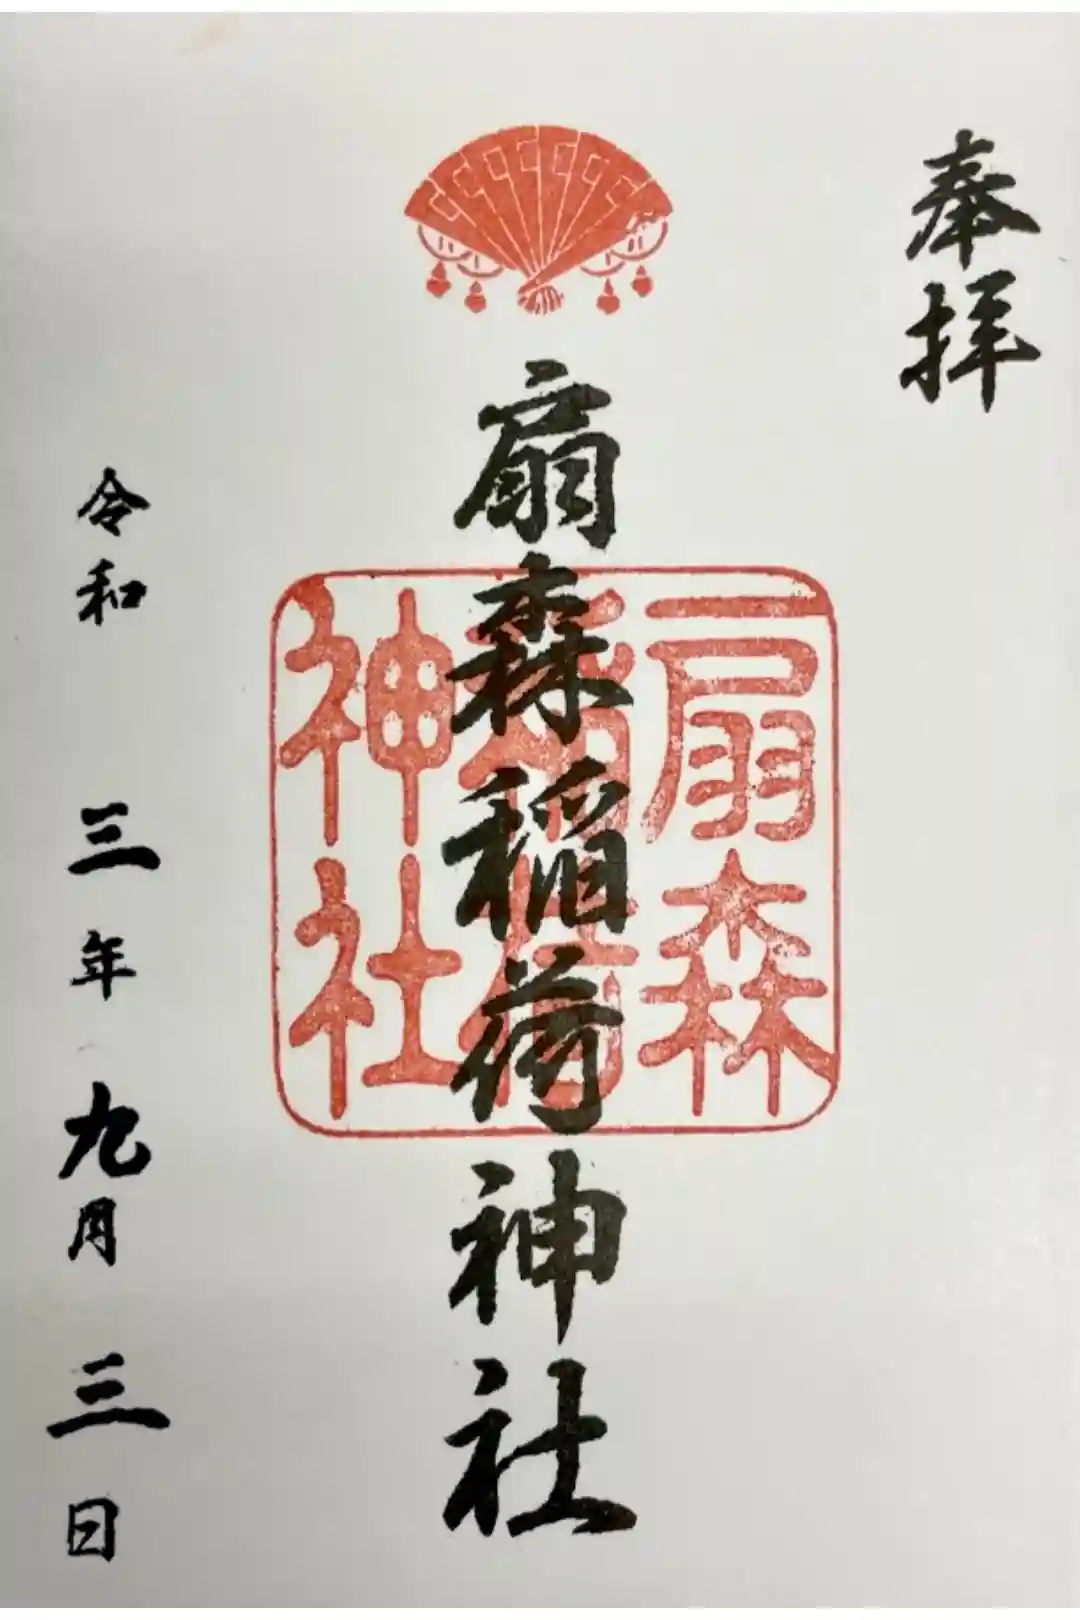 奉拝
扇森稲荷神社
扇森
稲荷
神社
令和 三年 九月 三日